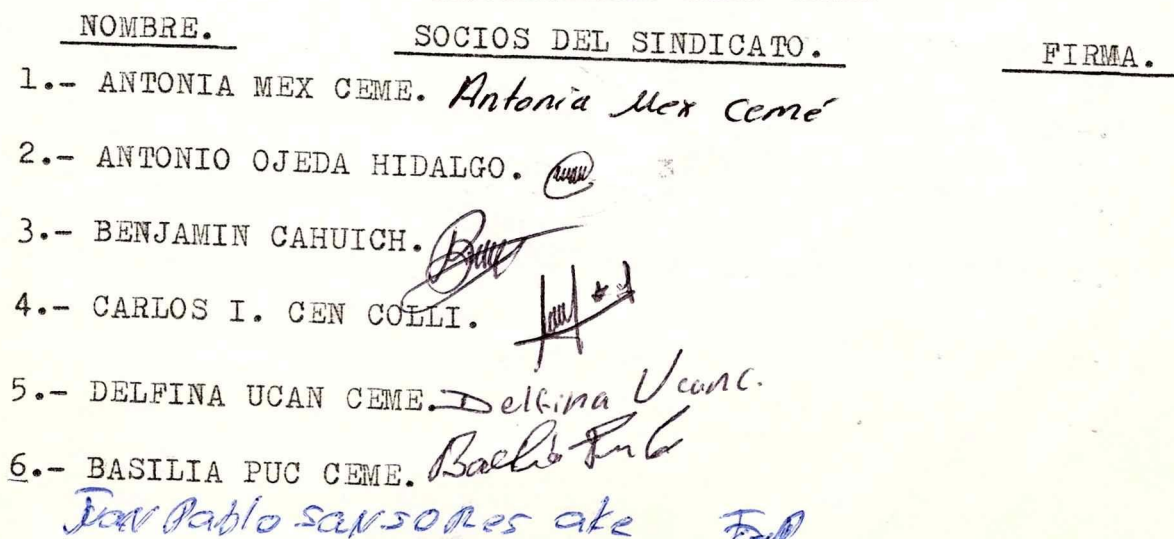 NOMBRE. SOCIOS DEL SINDICATO. FIRMA.
1.- ANTONIA MEX CEME. Antonia Mex Cemé
2.- ANTONIO OJEDA HIDALGO.
3.- BENJAMIN CAHUICH.
4.- CARLOS I. CEN COLLI.
5.- DELFINA UCAN CEME. Delfina Ucan C.
6.- BASILIA PUC CEME.
Juan Pablo Sansores ake